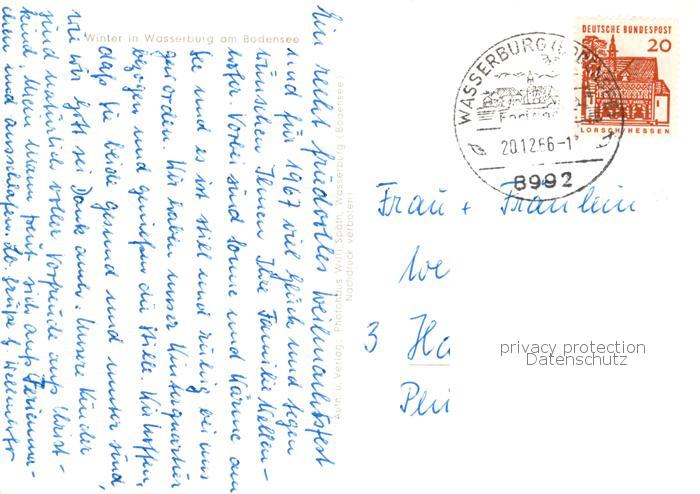 Winter in Wasserburg am Bodensee
Ein recht friedvolles Weihnachtsfest
und für 1967 viel Glück und Segen
wünschen Ihnen Ihre Familie
Vorbei sind Sonne und Wärme am
See und es ist still und ruhig bei uns
geworden. Wir haben unser Winterquartier
bezogen und genießen die Stille. Wir hoffen,
daß Sie beide gesund und munter sind,
wie wir Gott sei Dank auch. Unsere Kinder
sind natürlich voller Vorfreude aufs Christ-
kind. Mein Mann freut sich aufs
und ausschlafen. Lb. Grüße
Auth. u. Verlag: Photohaus Willi Spahn, Wasserburg (Bodensee)
Nachdruck verboten!
WASSERBURG (BODENSEE)
20.12.66-1
8992
DEUTSCHE BUNDESPOST
20
LORSCH/HESSEN
Frau + Fräulein
We
3 Ha
Pei
privacy protection
Datenschutz